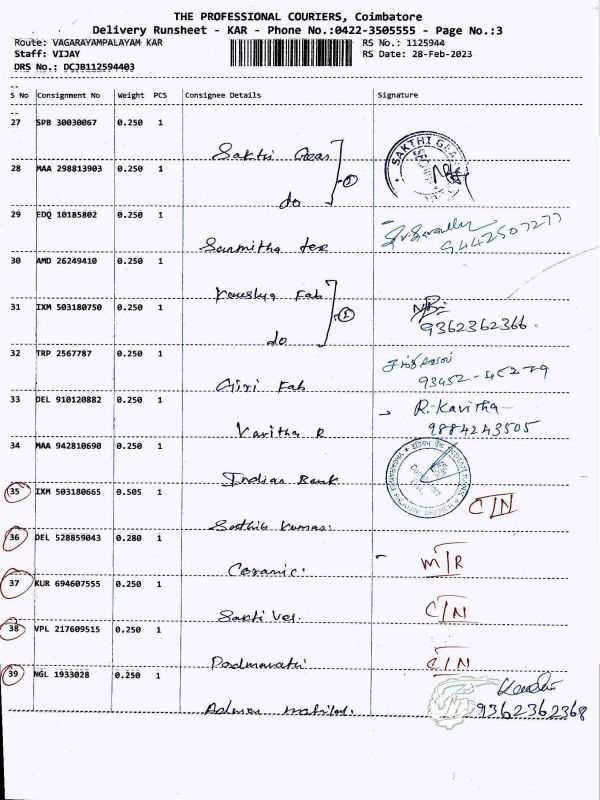 THE PROFESSIONAL COURIERS, Coimbatore
Delivery Runsheet - KAR - Phone No.:0422-3505555 - Page No.:3
Route: VAGARAYAMPALAYAM KAR RS No.: 1125944
Staff: VIJAY RS Date: 28-Feb-2023
DRS No.: DCJB112594403
S No Consignment No Weight PCS Consignee Details Signature
27 SPB 30030067 0.250 1
Sakthi Gear
28 MAA 298813903 0.250 1
do
29 EDQ 10185802 0.250 1
Sarmitha tex
9442507277
30 AMD 26249410 0.250 1
Fab
31 IXM 503180750 0.250 1
do
9362362366
32 TRP 2567787 0.250 1
Giri Fab
93452-
33 DEL 910120882 0.250 1
Kavitha R
R. Kavitha
9884243505
34 MAA 942810690 0.250 1
Indian Bank
35 IXM 503180665 0.505 1
Sathis Kumar.
C/N
36 DEL 528859043 0.280 1
Ceramic.
M/R
37 KUR 694607555 0.250 1
Sakti Vel.
C/N
38 VPL 217609515 0.250 1
Padmavathi
C/N
39 NGL 1933028 0.250 1
9362362368